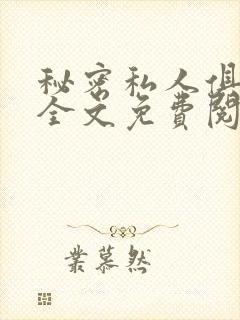 秘密私人俱
全文免费阅
业慕然